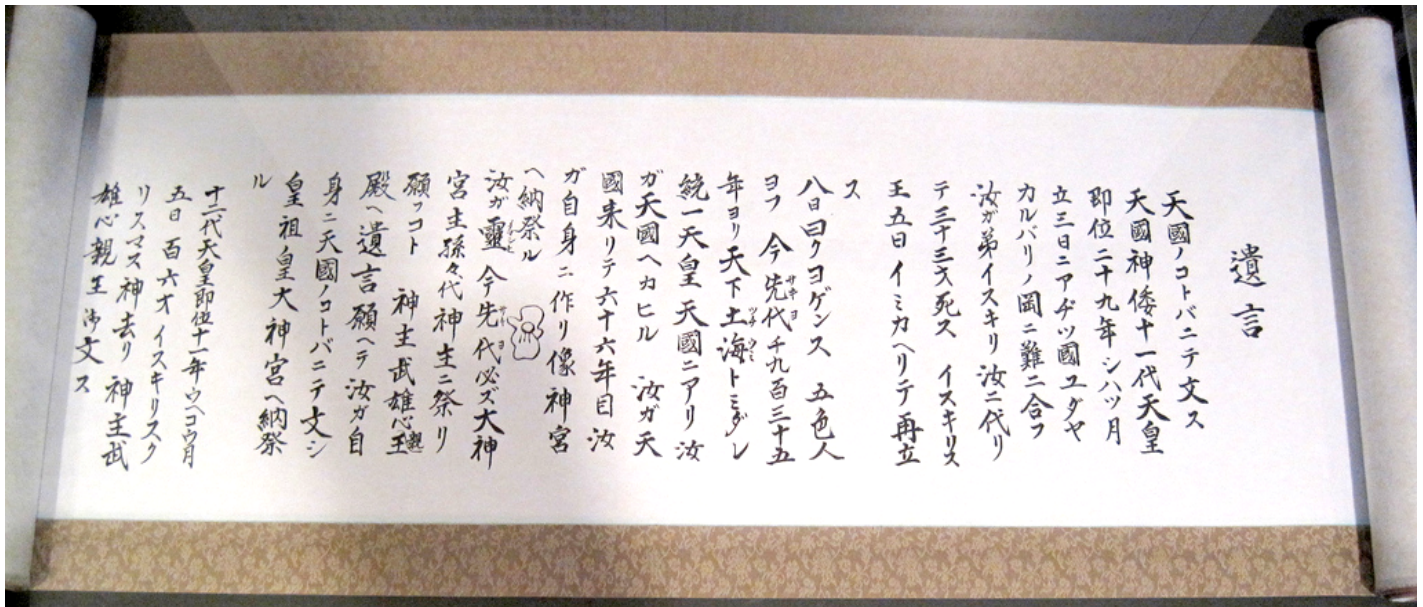 遺言
天國ノコトバニテ文ス
天國神倭十一代天皇
即位二十九年シハツ月
立三日ニアヂツ國ユダヤ
カルバリノ岡ニ難ニ合フ
汝ガ弟イスキリ汝ニ代リ
テ三十三才死ス イスキリス
王五日イミカヘリテ再立
ス
八日曰クヨゲンス 五色人
ヨフ 今先代千九百三十五
年ヨリ天下土海トミダレ
統一天皇天國ニアリ汝
ガ天國ヘカヒル 汝ガ天
國来リテ六十六年目汝
ガ自身ニ作リ像神宮
ヘ納祭ル
汝ガ靈 今先代必ズ大神
宮主孫々代神主ニ祭リ
願フコト 神主武雄心親王
殿ヘ遺言願ヘテ汝ガ自
身ニ天國ノコトバニテ文シ
皇祖皇大神宮ヘ納祭
ル
十二代天皇即位十一年ウヘコウ月
五日 百六才 イスキリスク
リスマス神去リ 神主武
雄心親王 文ス